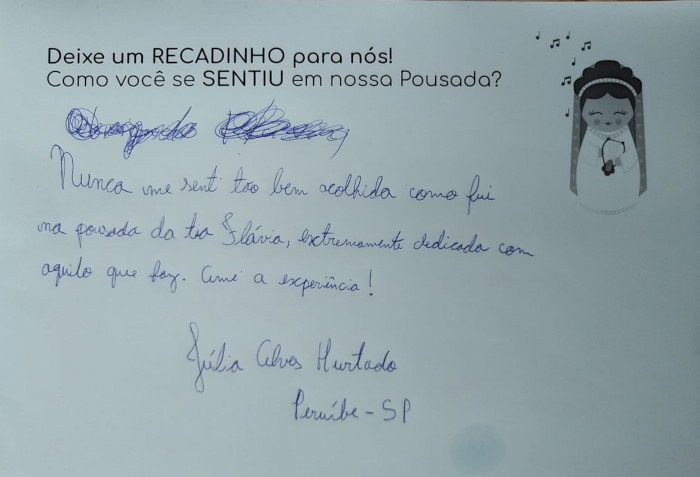 Deixe um RECADINHO para nós!
Como você se SENTIU em nossa Pousada?
Nunca me sent tão bem acolhida como fui
na pousada da tia Flávia, extremamente dedicada com
aquilo que faz. Amei a experiência!
Júlia Alves Hurtado
Peruíbe - SP